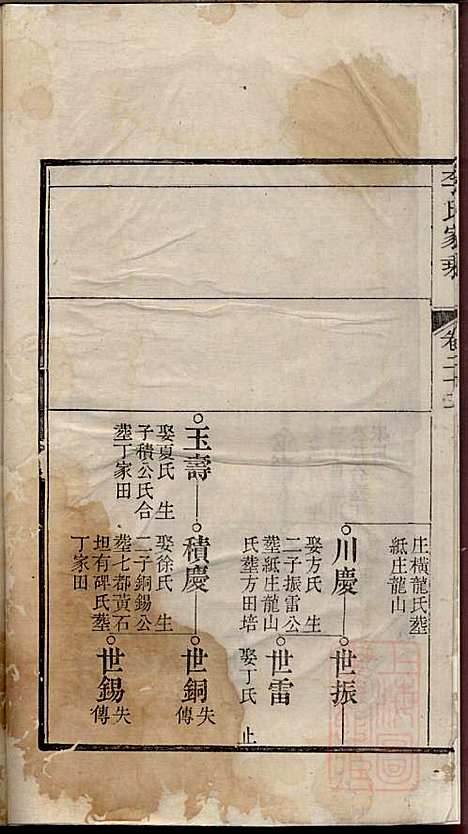 氏家
卷二十
庄橫龍氏塟
紙庄龍山
川慶
娶方氏生
二子振雷公
塟紙庄龍山
氏塟方田培
世振
世雷
娶丁氏
止
玉壽
娶夏氏生
子積公氏合
塟丁家田
積慶
娶徐氏生
二子銅錫公
塟七都黃石
坦有碑氏塟
丁家田
世銅
失傳
世錫
失傳